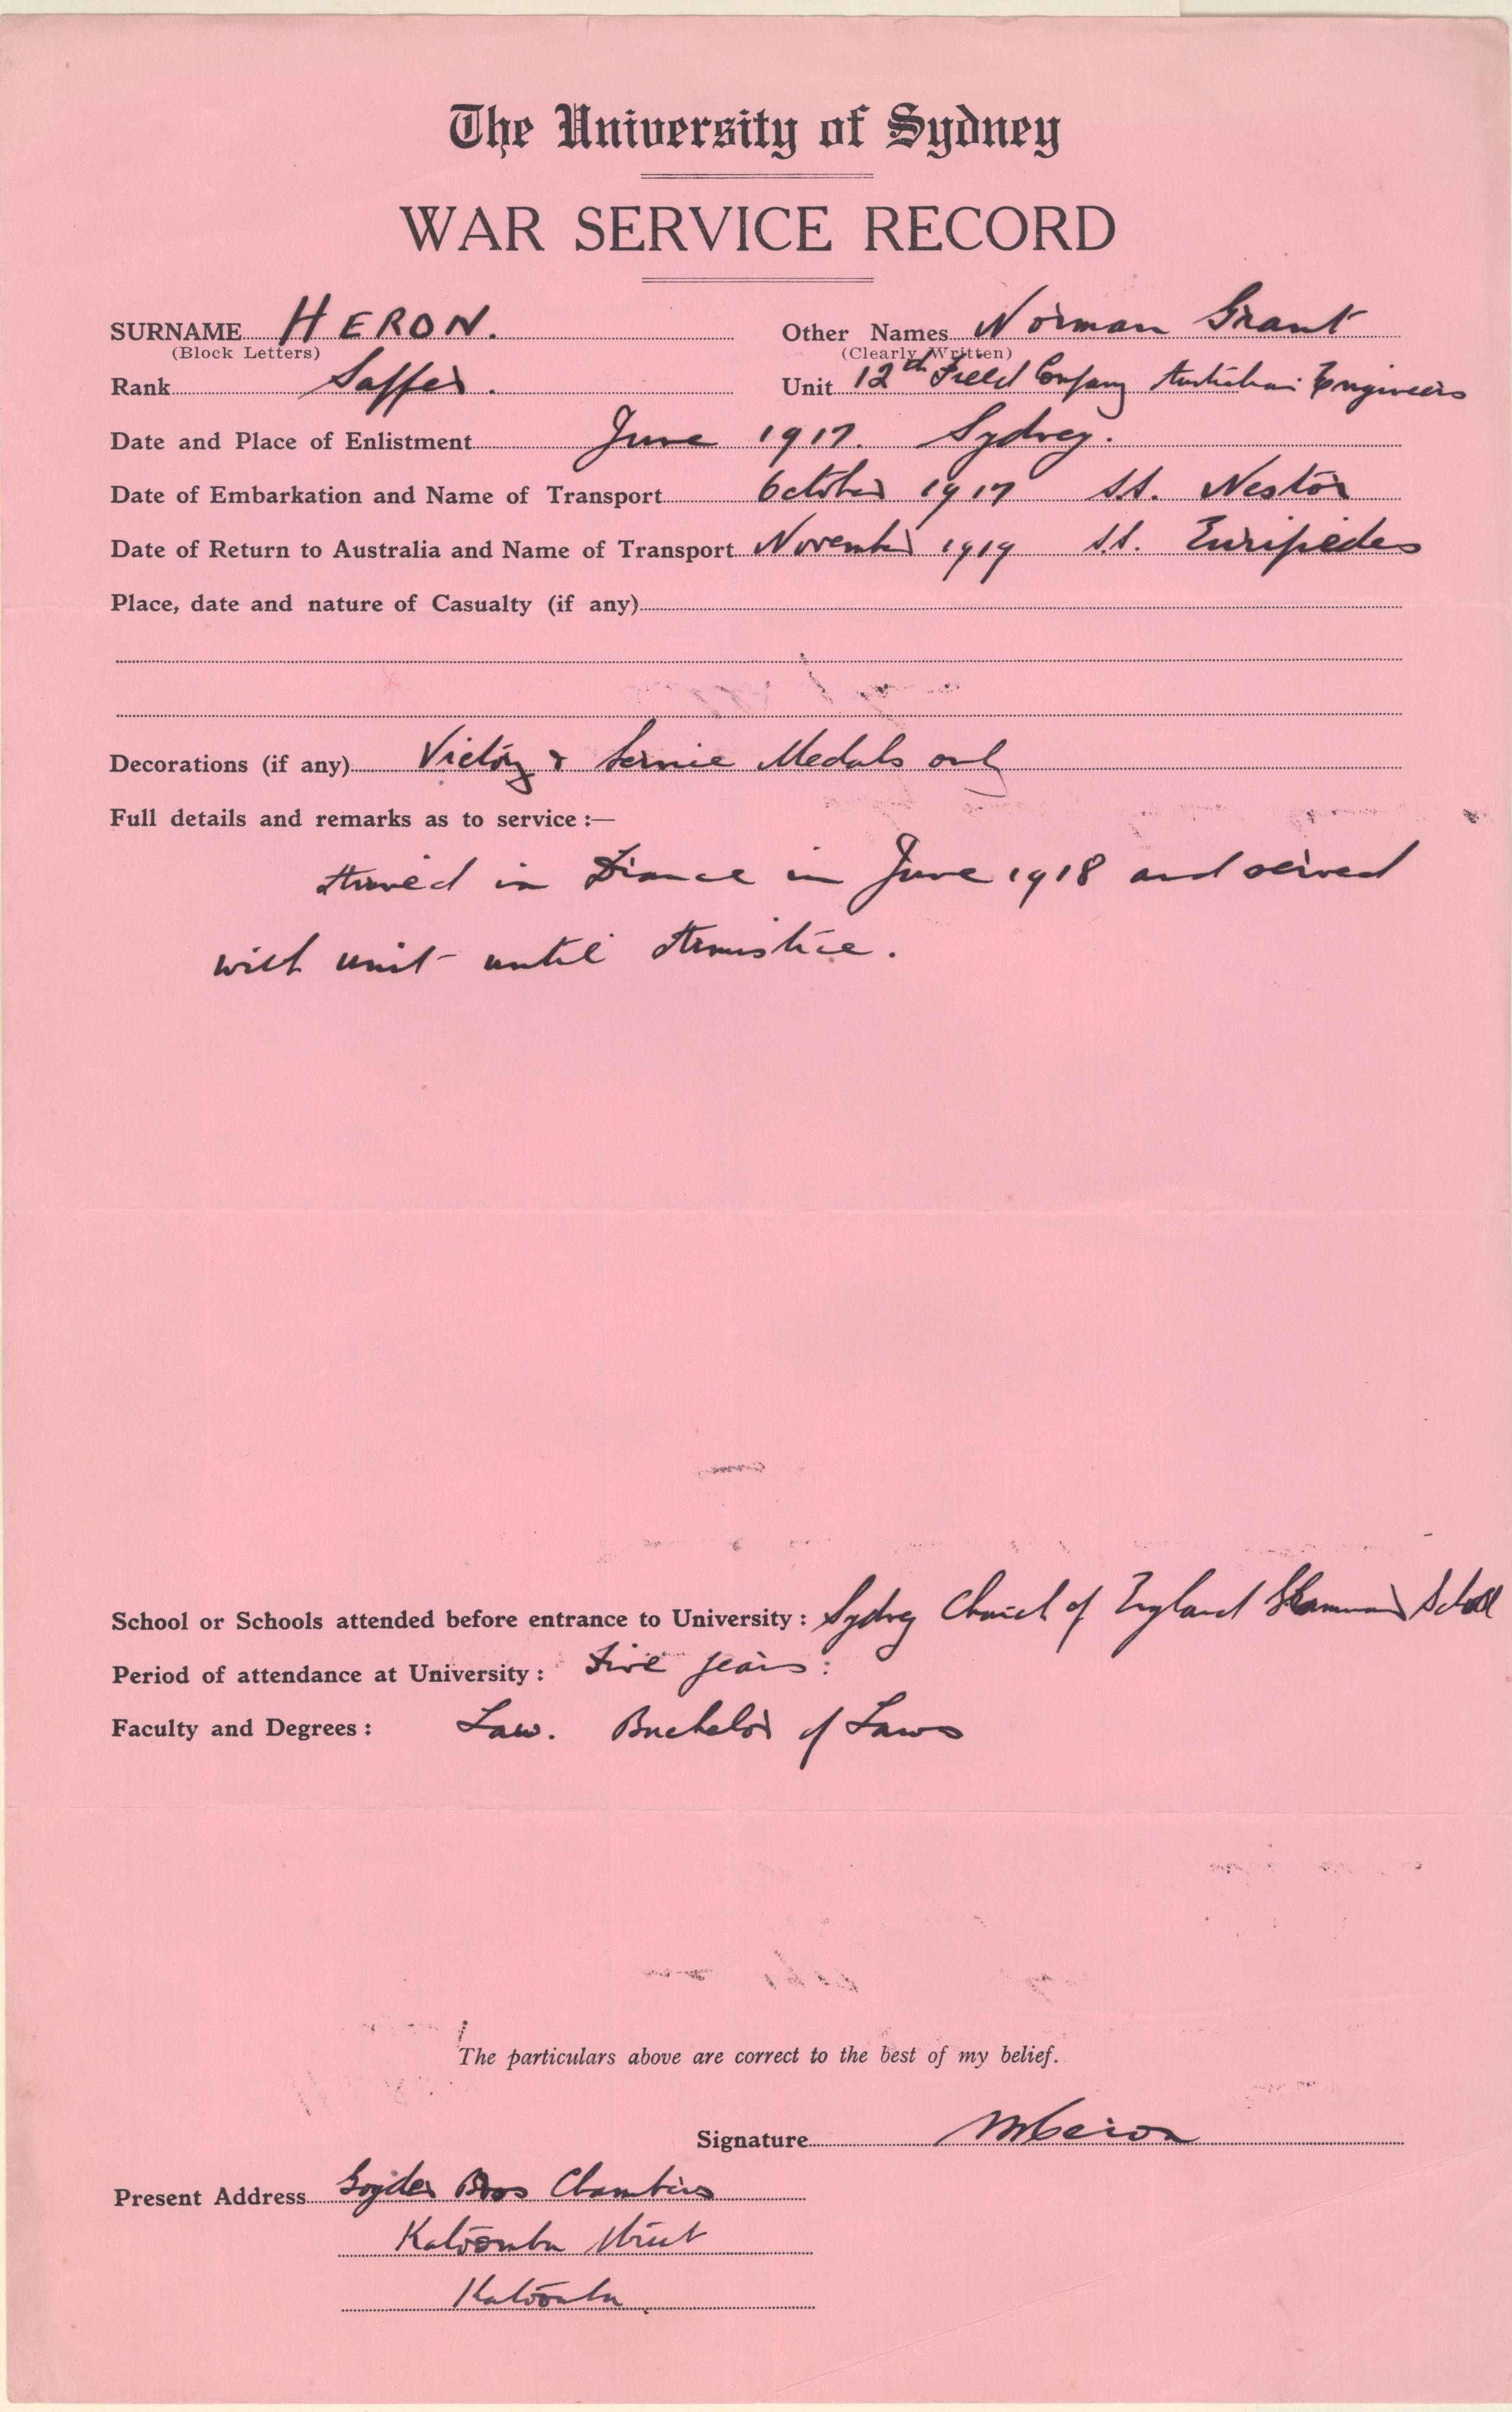 The University of Sydney
WAR SERVICE RECORD
SURNAME HERON. Other Names Norman Grant
(Block Letters) (Clearly Written)
Rank Sapper. Unit 12th Field Company Australian Engineers
Date and Place of Enlistment June 1917. Sydney.
Date of Embarkation and Name of Transport October 1917 s.s. Nestor
Date of Return to Australia and Name of Transport November 1919 s.s. Euripides
Place, date and nature of Casualty (if any)
Decorations (if any) Victory & Service Medals only
Full details and remarks as to service :—
Arrived in France in June 1918 and served
with unit until Armistice.
School or Schools attended before entrance to University : Sydney Church of England Grammar School
Period of attendance at University : Five years :
Faculty and Degrees : Law. Bachelor of Laws
The particulars above are correct to the best of my belief.
Signature NHeron
Present Address Goyder Bros Chambers
Katoomba Street
Katoomba